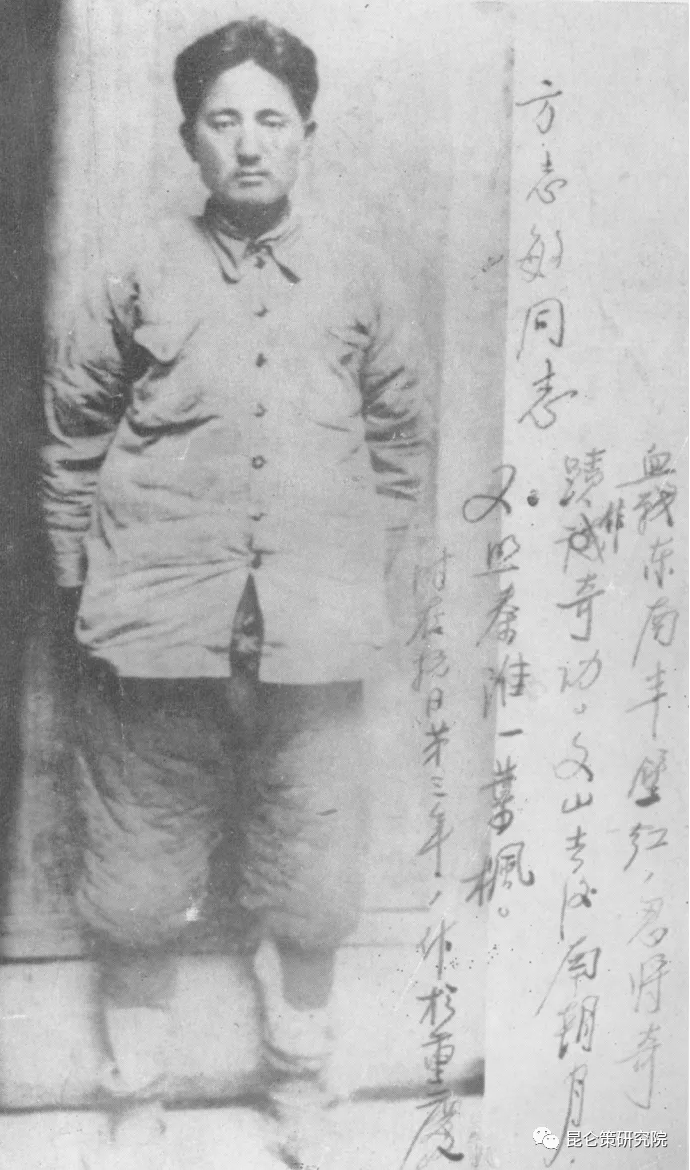 方志敏同志
血战东南半壁红，忍将奇
蹟作奇功。文山去后南朝月，
又照秦淮一葉楓。
时在抗日第三年，作於重慶
昆仑策研究院